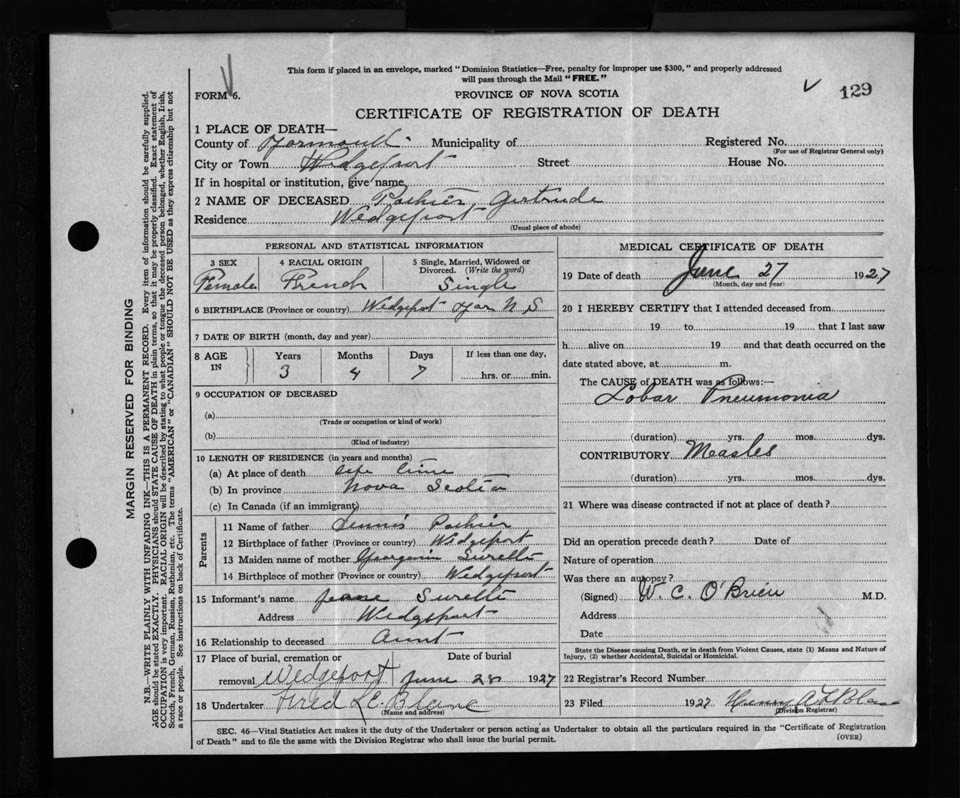 This form if placed in an envelope, marked "Dominion Statistics—Free, penalty for improper use $300," and properly addressed
will pass through the Mail "FREE."
FORM 6.
PROVINCE OF NOVA SCOTIA
129
CERTIFICATE OF REGISTRATION OF DEATH
1 PLACE OF DEATH—
County of Yarmouth Municipality of Registered No.
(For use of Registrar General only)
City or Town Wedgeport Street House No.
If in hospital or institution, give name
2 NAME OF DECEASED Pothier, Gertrude
Residence Wedgeport
(Usual place of abode)
PERSONAL AND STATISTICAL INFORMATION
3 SEX 4 RACIAL ORIGIN 5 Single, Married, Widowed or
Divorced. (Write the word)
Female French Single
6 BIRTHPLACE (Province or country) Wedgeport Yar N S
7 DATE OF BIRTH (month, day and year)
8 AGE IN Years Months Days If less than one day,
3 4 7 hrs. or min.
9 OCCUPATION OF DECEASED
(a)
(Trade or occupation or kind of work)
(b)
(Kind of industry)
10 LENGTH OF RESIDENCE (in years and months)
(a) At place of death life time
(b) In province Nova Scotia
(c) In Canada (if an immigrant)
Parents
11 Name of father Dennis Pothier
12 Birthplace of father (Province or country) Wedgeport
13 Maiden name of mother Surette
14 Birthplace of mother (Province or country) Wedgeport
15 Informant's name Surette
Address Wedgeport
16 Relationship to deceased Aunt
17 Place of burial, cremation or Date of burial
removal Wedgeport June 28 1927
18 Undertaker Fred LeBlanc
(Name and address)
MEDICAL CERTIFICATE OF DEATH
19 Date of death June 27 1927
(Month, day and year)
20 I HEREBY CERTIFY that I attended deceased from
19 to 19 that I last saw
h alive on 19 and that death occurred on the
date stated above, at m.
The CAUSE of DEATH was as follows:—
Lobar Pneumonia
(duration) yrs. mos. dys.
CONTRIBUTORY Measles
(duration) yrs. mos. dys.
21 Where was disease contracted if not at place of death?
Did an operation precede death? Date of
Nature of operation
Was there an autopsy?
(Signed) W. C. O'Brien M.D.
Address
Date
State the Disease causing Death, or in death from Violent Causes, state (1) Means and Nature of
Injury, (2) whether Accidental, Suicidal or Homicidal.
22 Registrar's Record Number
23 Filed 1927 Henry A LeBlanc
(Division Registrar)
SEC. 46—Vital Statistics Act makes it the duty of the Undertaker or person acting as Undertaker to obtain all the particulars required in the "Certificate of Registration
of Death" and to file the same with the Division Registrar who shall issue the burial permit.
(OVER)
MARGIN RESERVED FOR BINDING
N.B.—WRITE PLAINLY WITH UNFADING INK—THIS IS A PERMANENT RECORD. Every item of information should be carefully supplied.
AGE should be stated EXACTLY. PHYSICIANS should STATE CAUSE OF DEATH in plain terms, so that it may be properly classified. Exact statement of
OCCUPATION is very important. RACIAL ORIGIN will be described by stating to what people or tongue the deceased person belonged, whether English, Irish,
Scotch, French, German, Russian, Ruthenian, etc. The terms "AMERICAN" or "CANADIAN" SHOULD NOT BE USED as they express citizenship but not
a race or people. See instructions on back of Certificate.